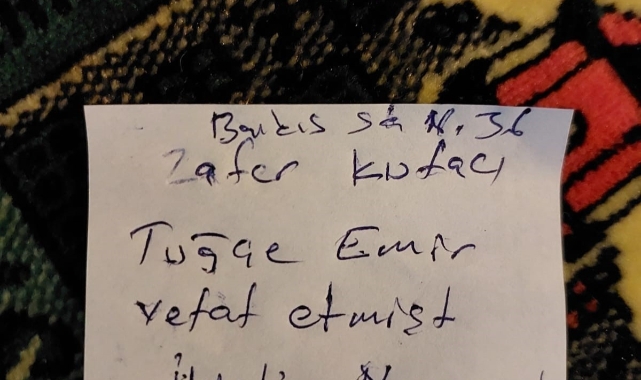 Barkıs sk N. 36
Zafer Kutacı
Tuğçe Emir
vefat etmişt